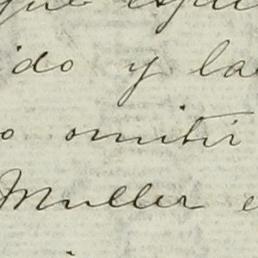 que espe
ido y la
o omitir
Muller e